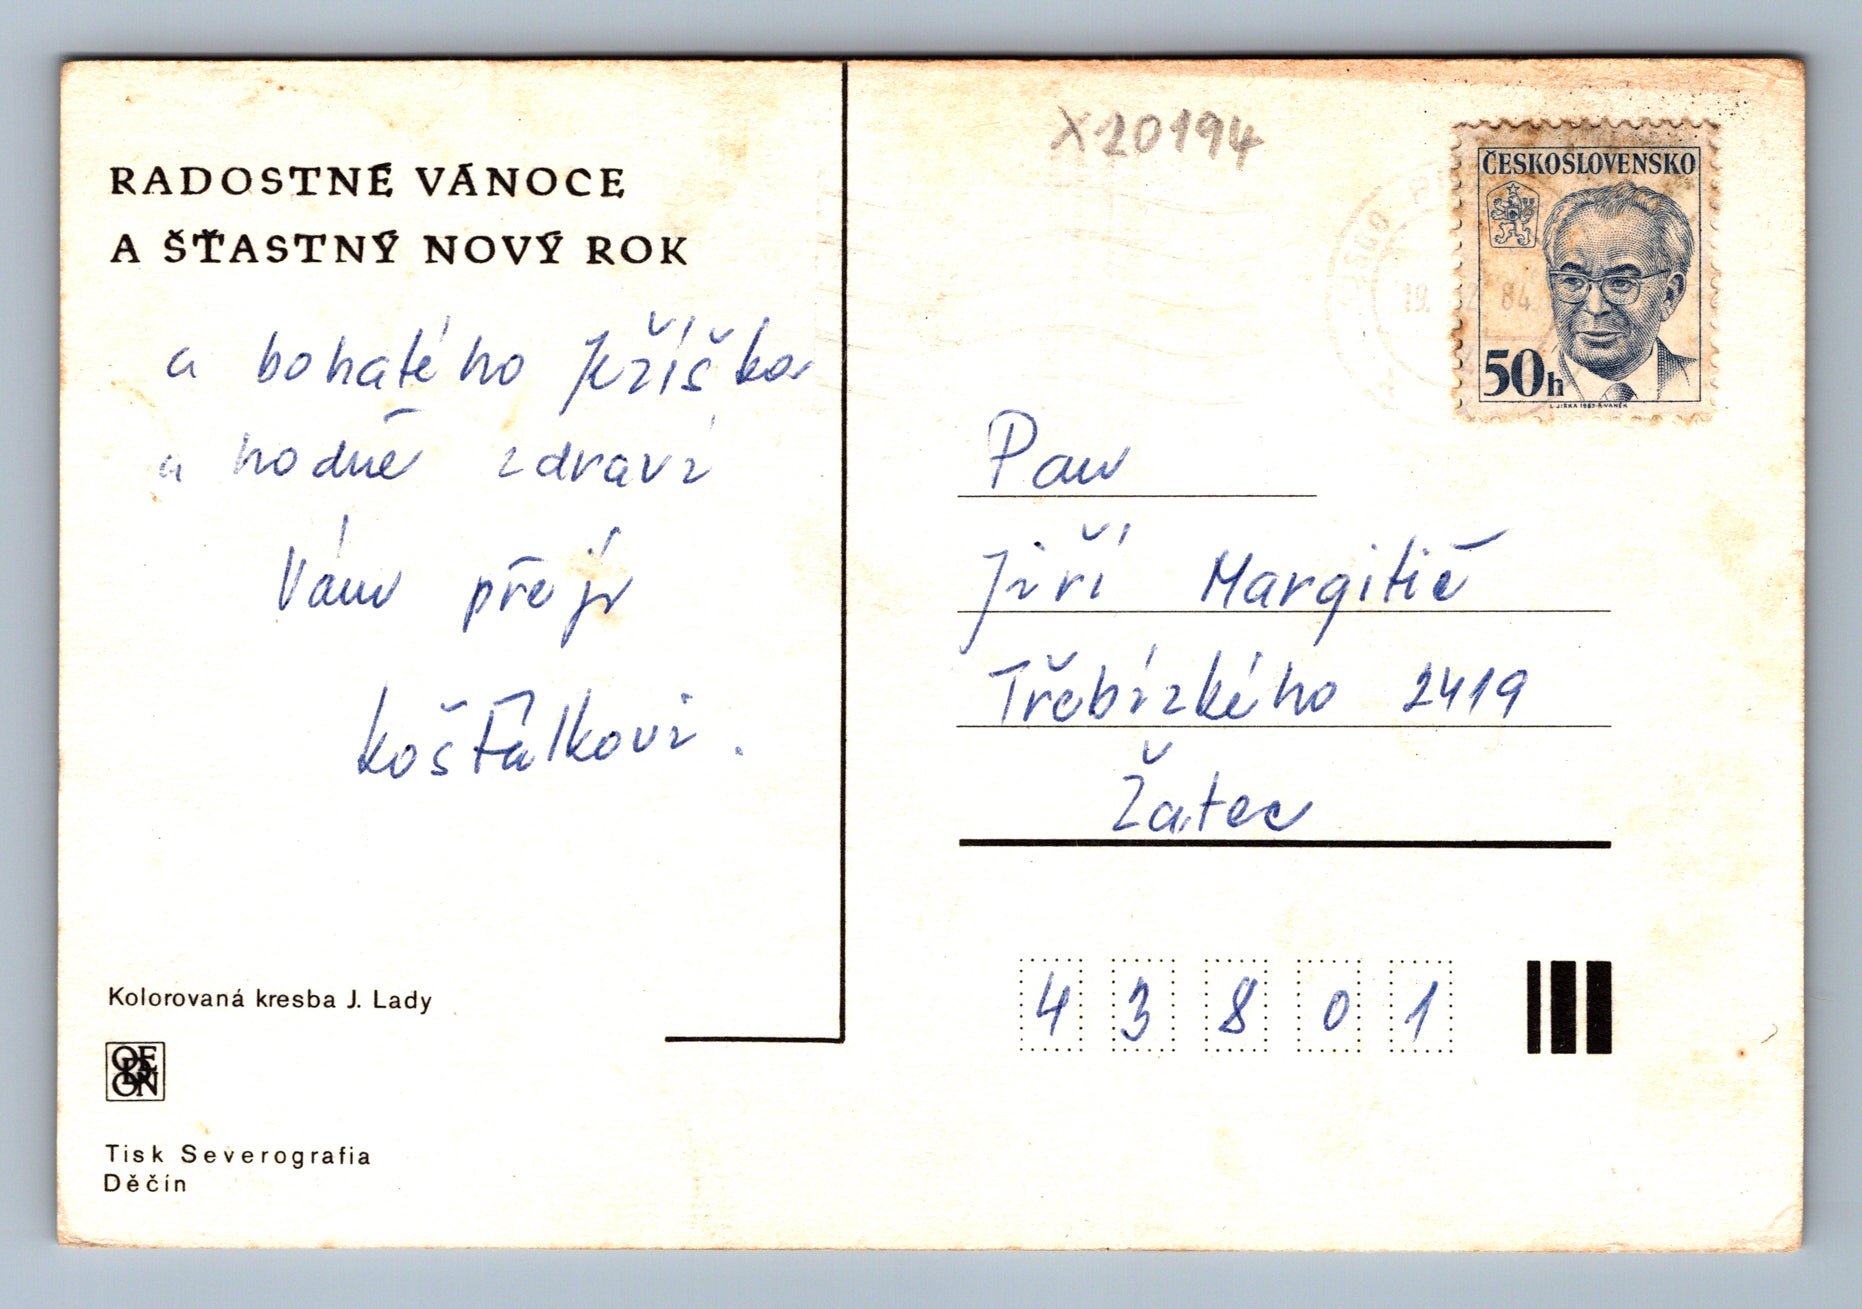 RADOSTNÉ VÁNOCE
A ŠŤASTNÝ NOVÝ ROK
a bohatého Ježíška
a hodně zdraví
Vám přejí
Košťálkovi.
Kolorovaná kresba J. Lady
ODEON
Tisk Severografia
Děčín
X20194
ČESKOSLOVENSKO
50h
L. JIRKA 1983 R. VANĚK
19. 12. 84
Pan
Jiří Margitič
Třebízkého 2419
Žatec
43801